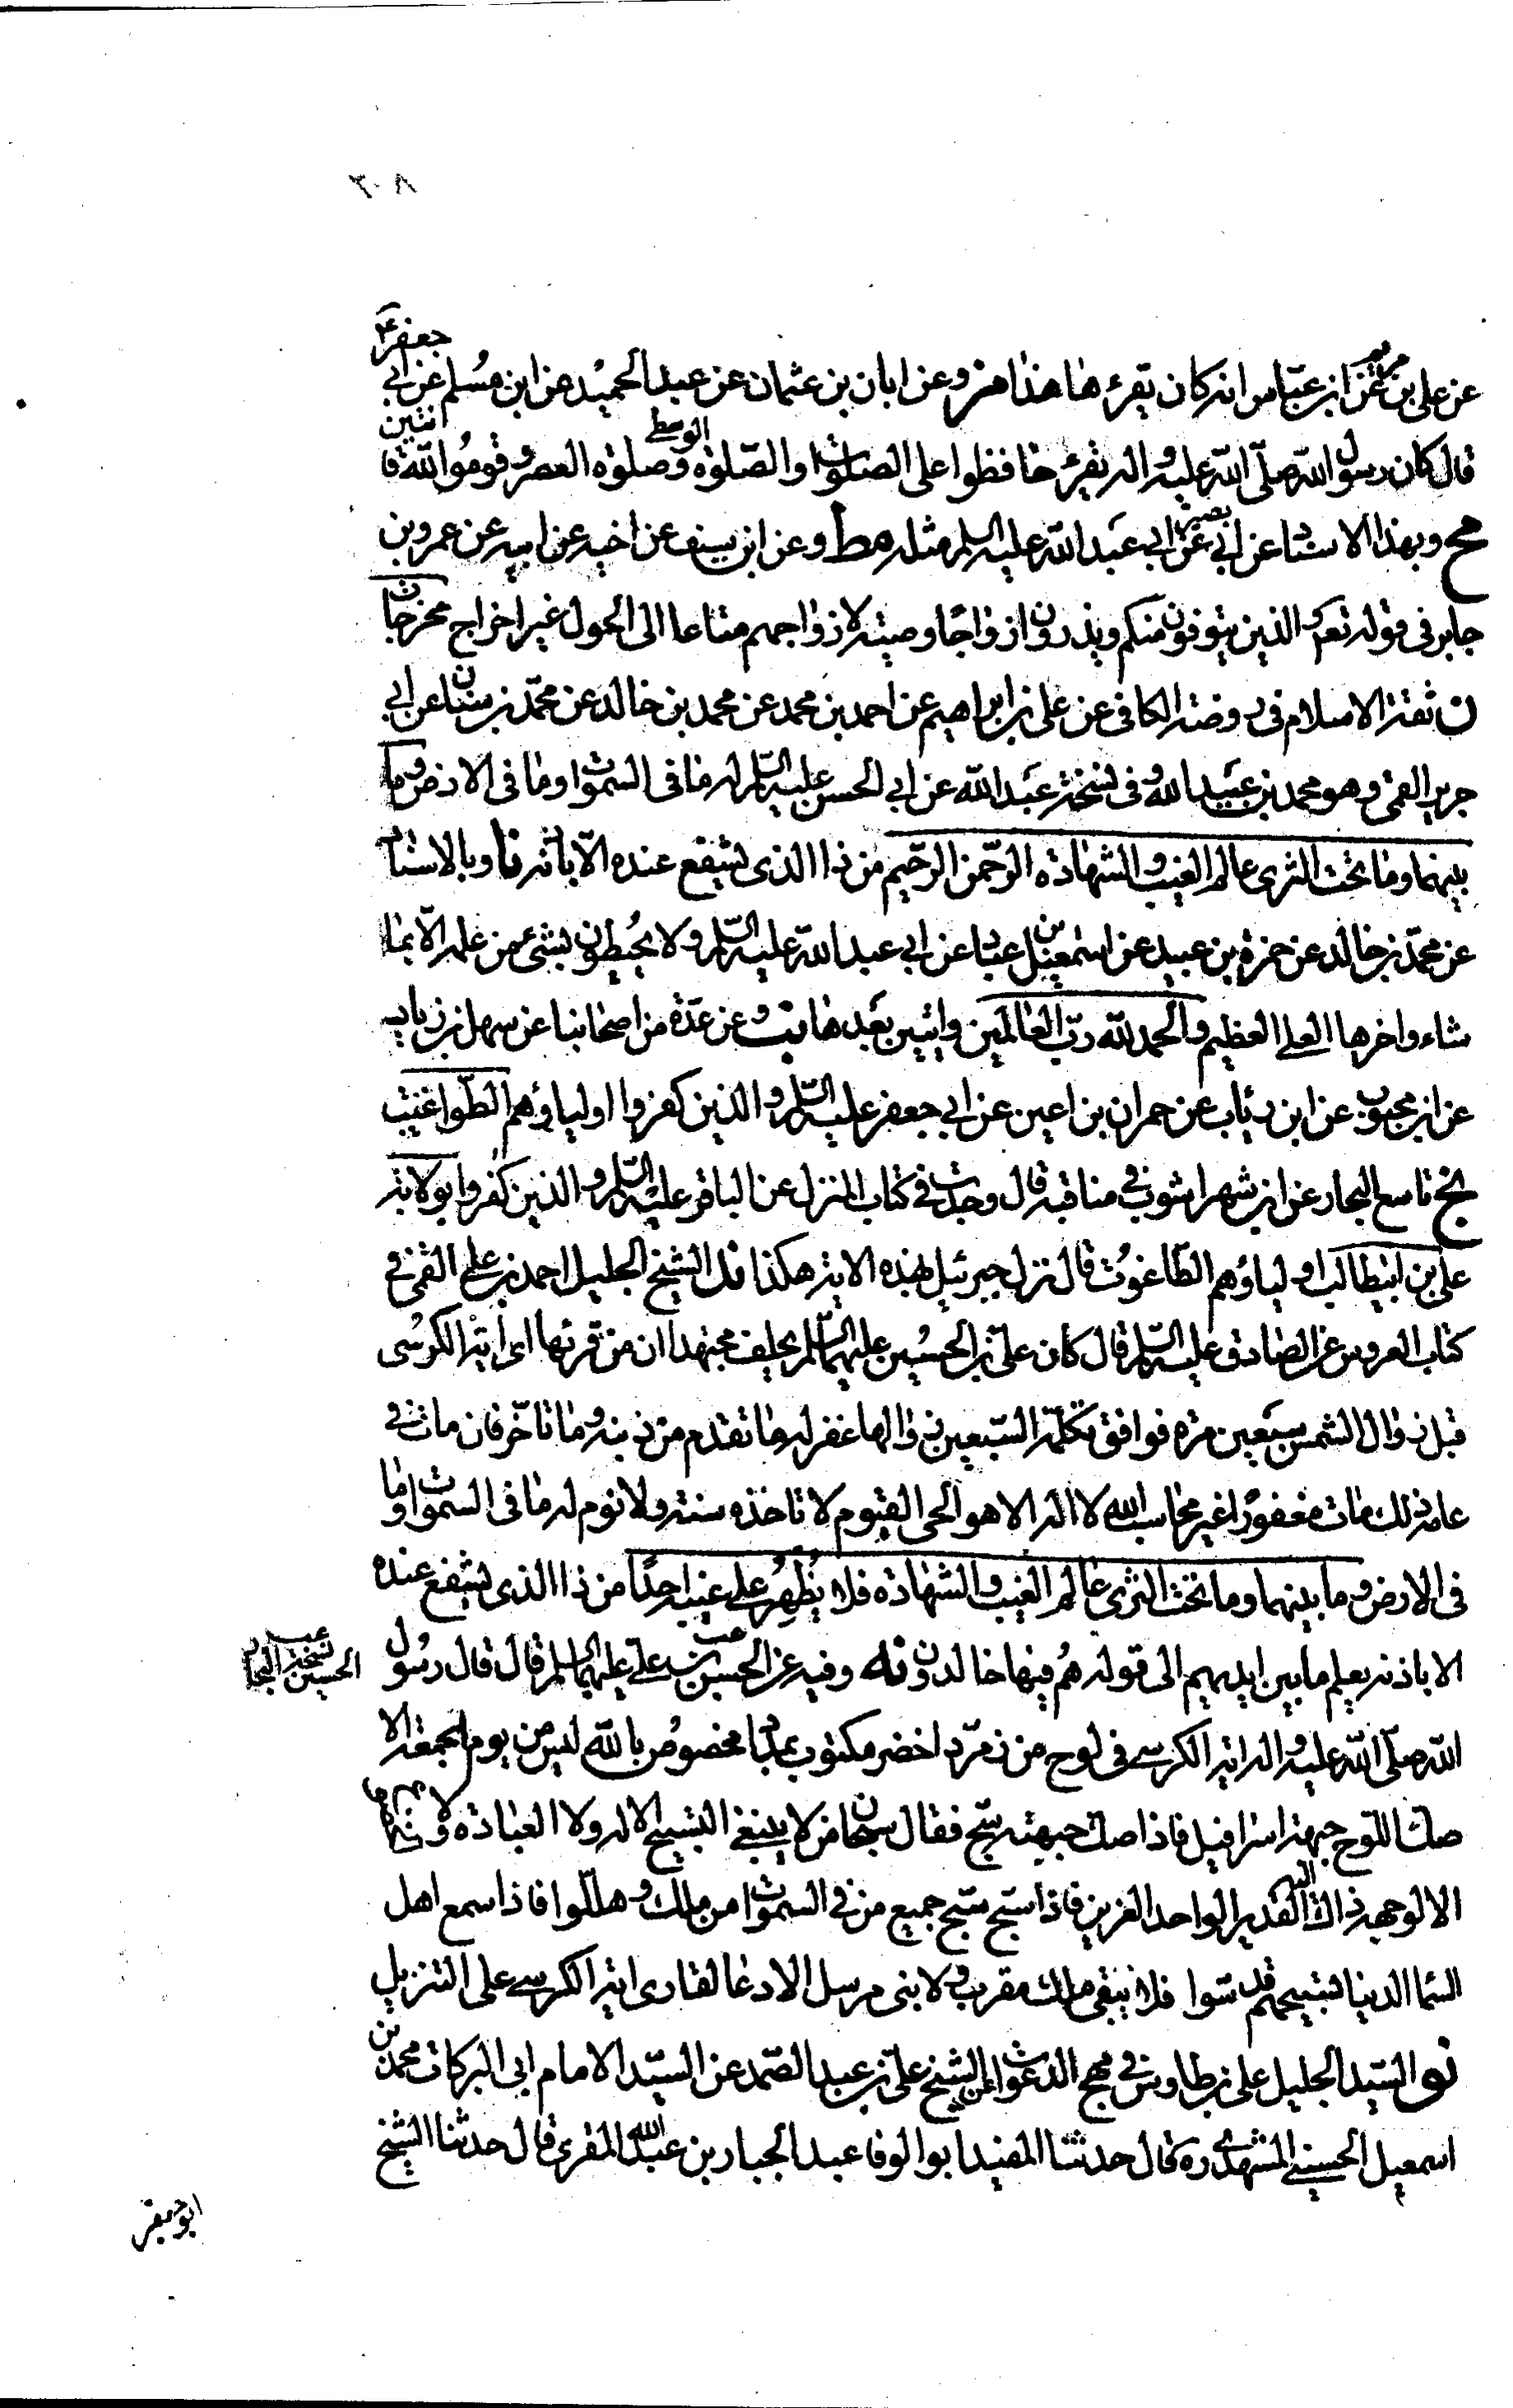 ٢٠٨
جعفرؑ
عن علي بن عن ابن عباس انه كان يقرءها هذا مز وعن ابان بن عثمان عن عبد الحميد عن ابن مسلم عن ابي
قال كان رسول الله صلى الله عليه واله يقرء حافظوا على الصلوات والصلوة الوسطى وصلوة العصر وقوموا لله قانتين
مح وبهذا الاسناد عن ابي بصير عن ابي عبد الله عليه السلم مثله مط وعن ابن سيف عن اخيه عن ابيه عن عمرو بن
جابر في قوله تعم والذين يتوفون منكم ويذرون ازواجا وصية لازواجهم متاعا الى الحول غير اخراج مخرجات
ن ثقة الاسلام في روضة الكافي عن علي بن ابراهيم عن احمد بن محمد عن محمد بن خالد عن محمد بن سنان عن ابي
جرير القمي وهو محمد بن عبيد الله وفي نسخة عبد الله عن ابي الحسن عليه السلم له ما في السموات وما في الارض وما
بينهما وما تحت الثرى عالم الغيب والشهادة الرحمن الرحيم من ذا الذي يشفع عنده الا باذنه نا وبالاسناد
عن محمد بن خالد عن حمزة بن عبيد عن اسمعيل بن عباد عن ابي عبد الله عليه السلم ولا يحيطون بشئ من علمه الا بما
شاء واخرها العلي العظيم والحمد لله رب العالمين وايتين بعدها نب وعن عدة من اصحابنا عن سهل بن زياد
عن ابن محبوب عن ابن رئاب عن حمران بن اعين عن ابي جعفر عليه السلم والذين كفروا اولياؤهم الطواغيت
نج تاسع البحار عن ابن شهراشوب في مناقبه قال وجدت في كتاب المنزل عن الباقر عليه السلم والذين كفروا بولاية
علي بن ابيطالب اولياؤهم الطاغوت قال نزل جبرئيل بهذه الاية هكذا ند الشيخ الجليل احمد بن علي القمي في
كتاب العروس عن الصادق عليه السلم قال كان علي بن الحسين عليهما السلم يحلف مجتهدا ان من قرئها اي اية الكرسي
قبل زوال الشمس سبعين مرة فوافق تكملة السبعين زوالها غفر له ما تقدم من ذنبه وما تاخر فان مات في
عامه ذلك مات مغفورا غير محاسب الله لا اله الا هو الحي القيوم لا تاخذه سنة ولا نوم له ما في السموات وما
في الارض وما بينهما وما تحت الثرى عالم الغيب والشهادة فلا يظهر على غيبه احدا من ذا الذي يشفع عنده
الا باذنه يعلم ما بين ايديهم الى قوله هم فيها خالدون نه وفيه عن الحسن بن علي عليهما السلم قال قال رسول
الحسين نسخة البحار
الله صلى الله عليه واله اية الكرسي في لوح من زمرد اخضر مكتوب بمداد مخصوص بالله ليس من يوم الجمعة الا
صك اللوح جبهة اسرافيل فاذا صك جبهته سبح فقال سبحان من لا ينبغي التسبيح الا له ولا العبادة و
الا لوجهه ذلك الله القدير الواحد العزيز فاذا سبح سبح جميع من في السموات من ملك وهللوا فاذا سمع اهل
السما الدنيا تسبيحهم قدسوا فلا يبقى ملك مقرب ولا نبي مرسل الا دعا لقارى اية الكرسي على التنزيل
نو السيد الجليل علي بن طاوس في مهج الدعوات عن الشيخ علي بن عبد الصمد عن السيد الامام ابي البركات محمد بن
اسمعيل الحسيني المشهدي ره قال حدثنا المفيد ابو الوفا عبد الجبار بن عبد الله المقري قال حدثنا الشيخ
ابو جعفر